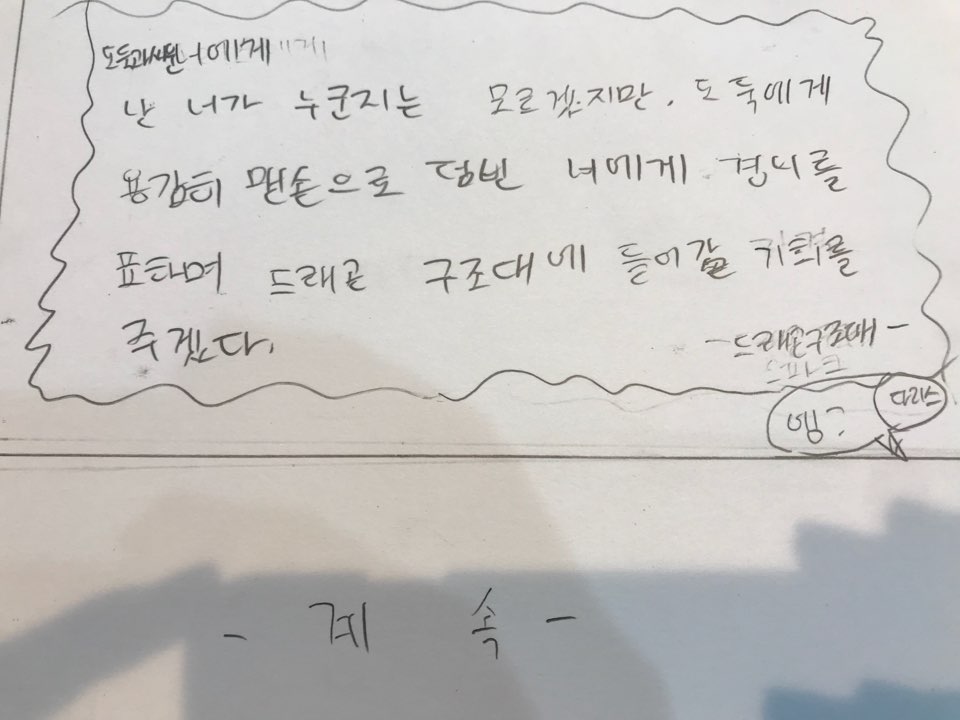 도둑과싸운 너에게
난 너가 누군지는 모르겠지만, 도둑에게
용감히 맨손으로 덤빈 너에게 경니를
표하며 드래곤 구조대에 들어갈 기회를
주겠다.
-드래곤구조대-
엥?
다리스
- 계 속 -